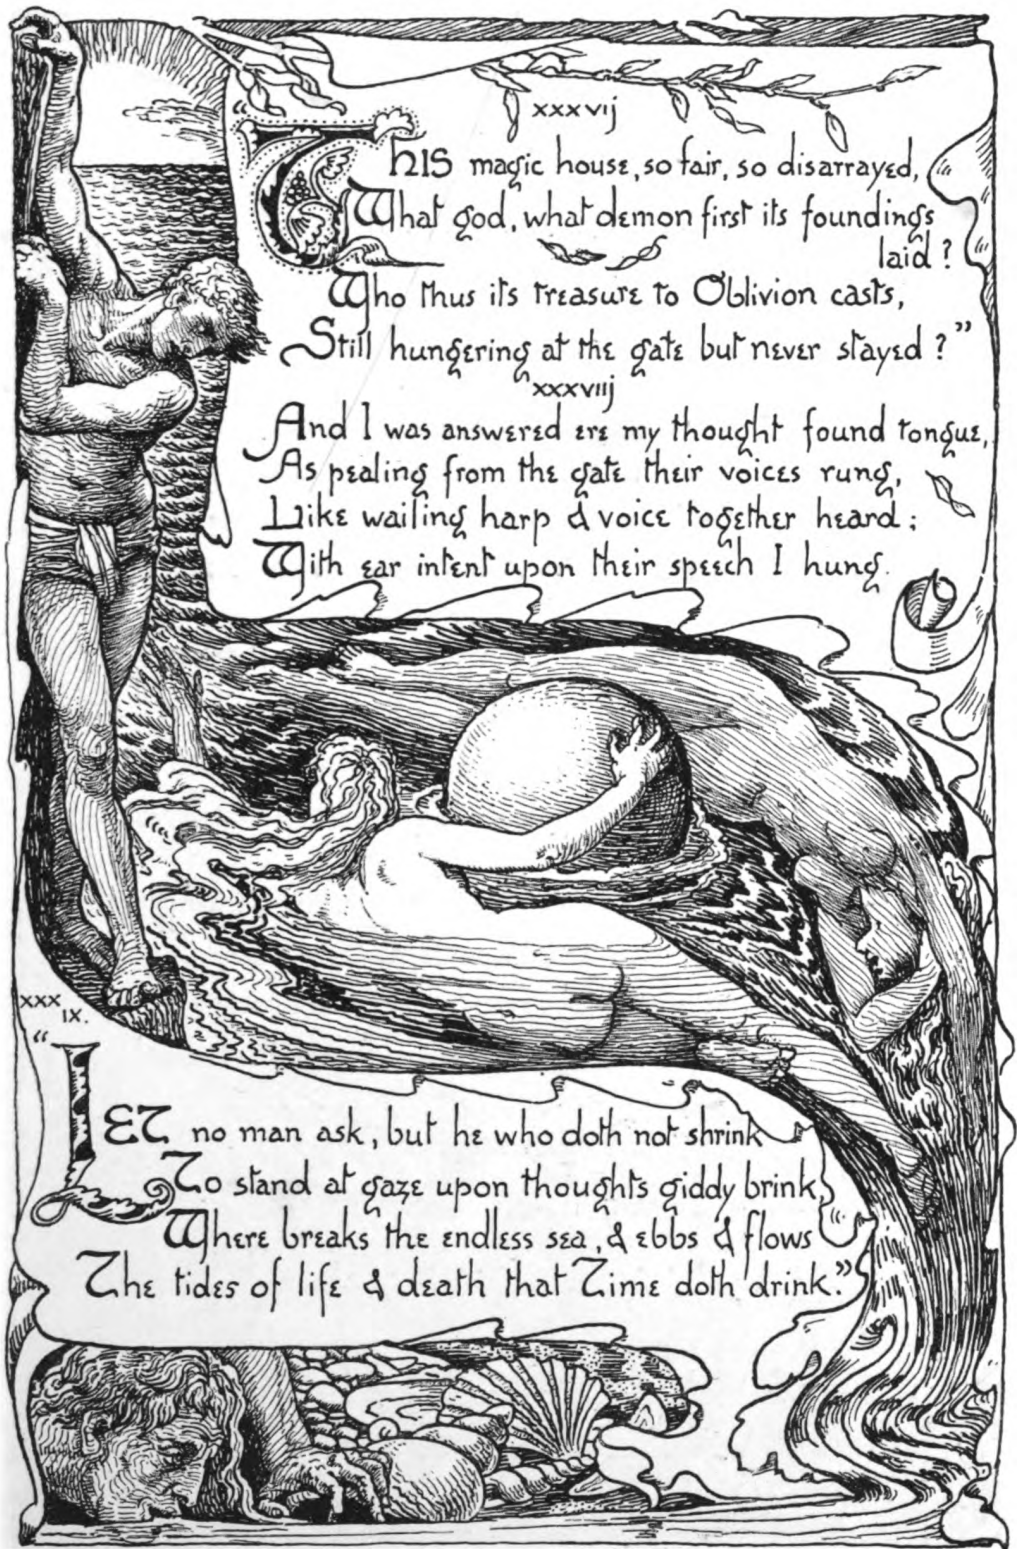 xxxvij
"This magic house, so fair, so disarrayed,
What god, what demon first its foundings
laid ?
Who thus its treasure to Oblivion casts,
Still hungering at the gate but never stayed ?"
xxxviij
And I was answered ere my thought found tongue,
As pealing from the gate their voices rung,
Like wailing harp & voice together heard ;
With ear intent upon their speech I hung.
xxx
IX.
"LET no man ask, but he who doth not shrink
To stand at gaze upon thoughts giddy brink,
Where breaks the endless sea, & ebbs & flows
The tides of life & death that Time doth drink."